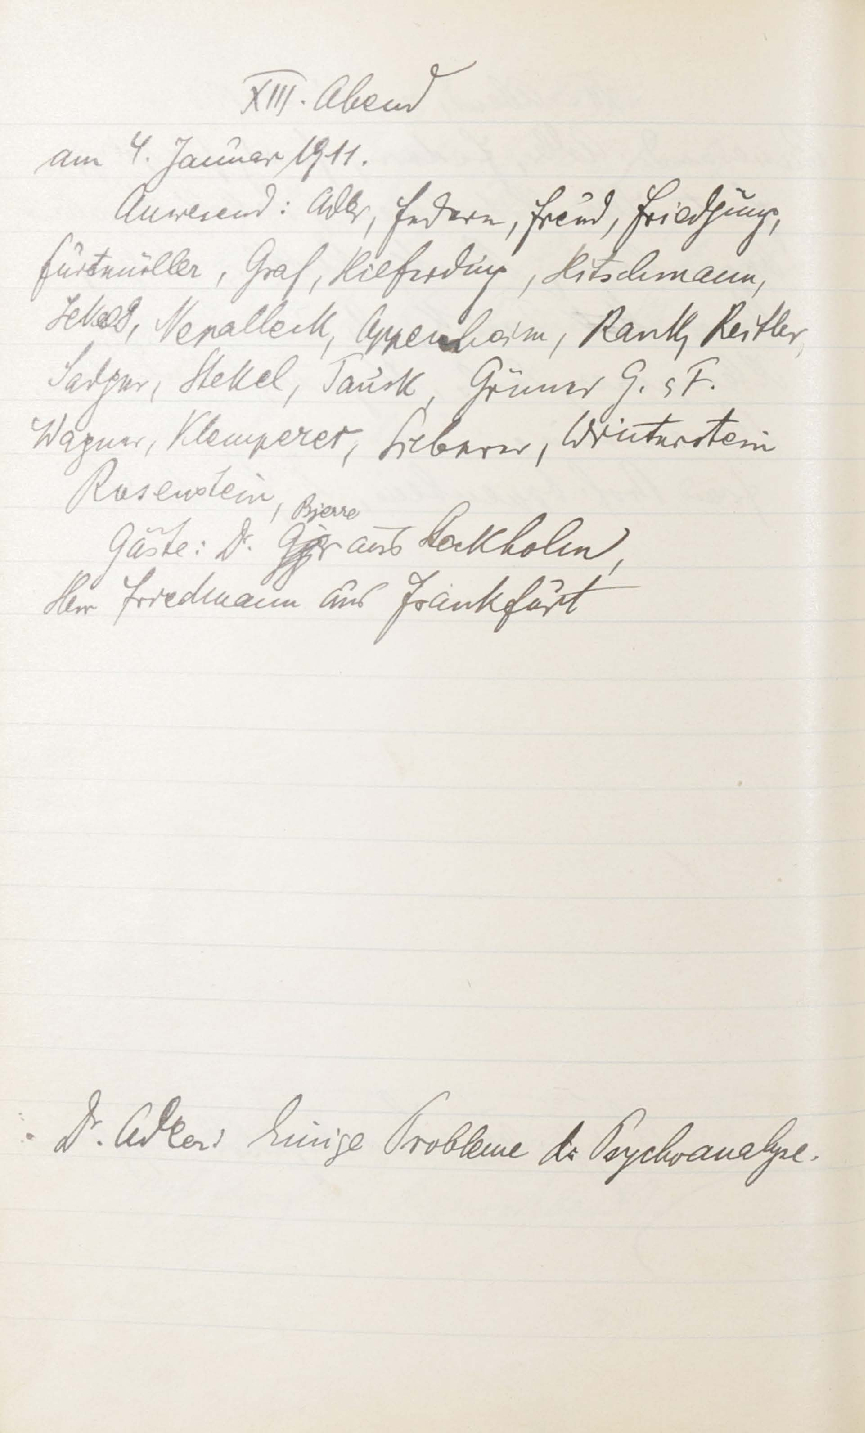 XIII. Abend
am 4. Januar 1911.
Anwesend: Adler, Federn, Freud, Friedjung,
Furtmüller, Graf, Hilferding, Hitschmann,
Jekels, Nepalleck, Oppenheim, Rank, Reitler,
Sadger, Stekel, Tausk, Grüner G. F.
Wagner, Klemperer, Silberer, Winterstein
Rosenstein,
Bjerre
Gäste: Dr. aus Stockholm,
Herr Friedmann aus Frankfurt
Dr. Adler: Einige Probleme der Psychoanalyse.